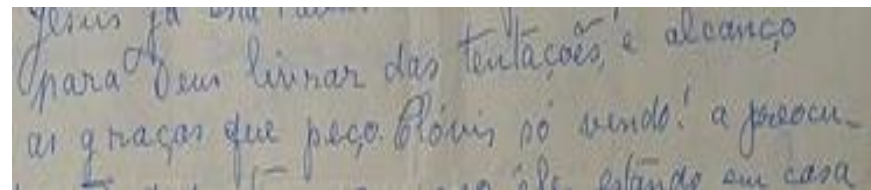 Jesus já
para Deus livrar das tentações, e alcanço
as graças que peço. Clóvis só vendo! a preocu-
ele estando em casa